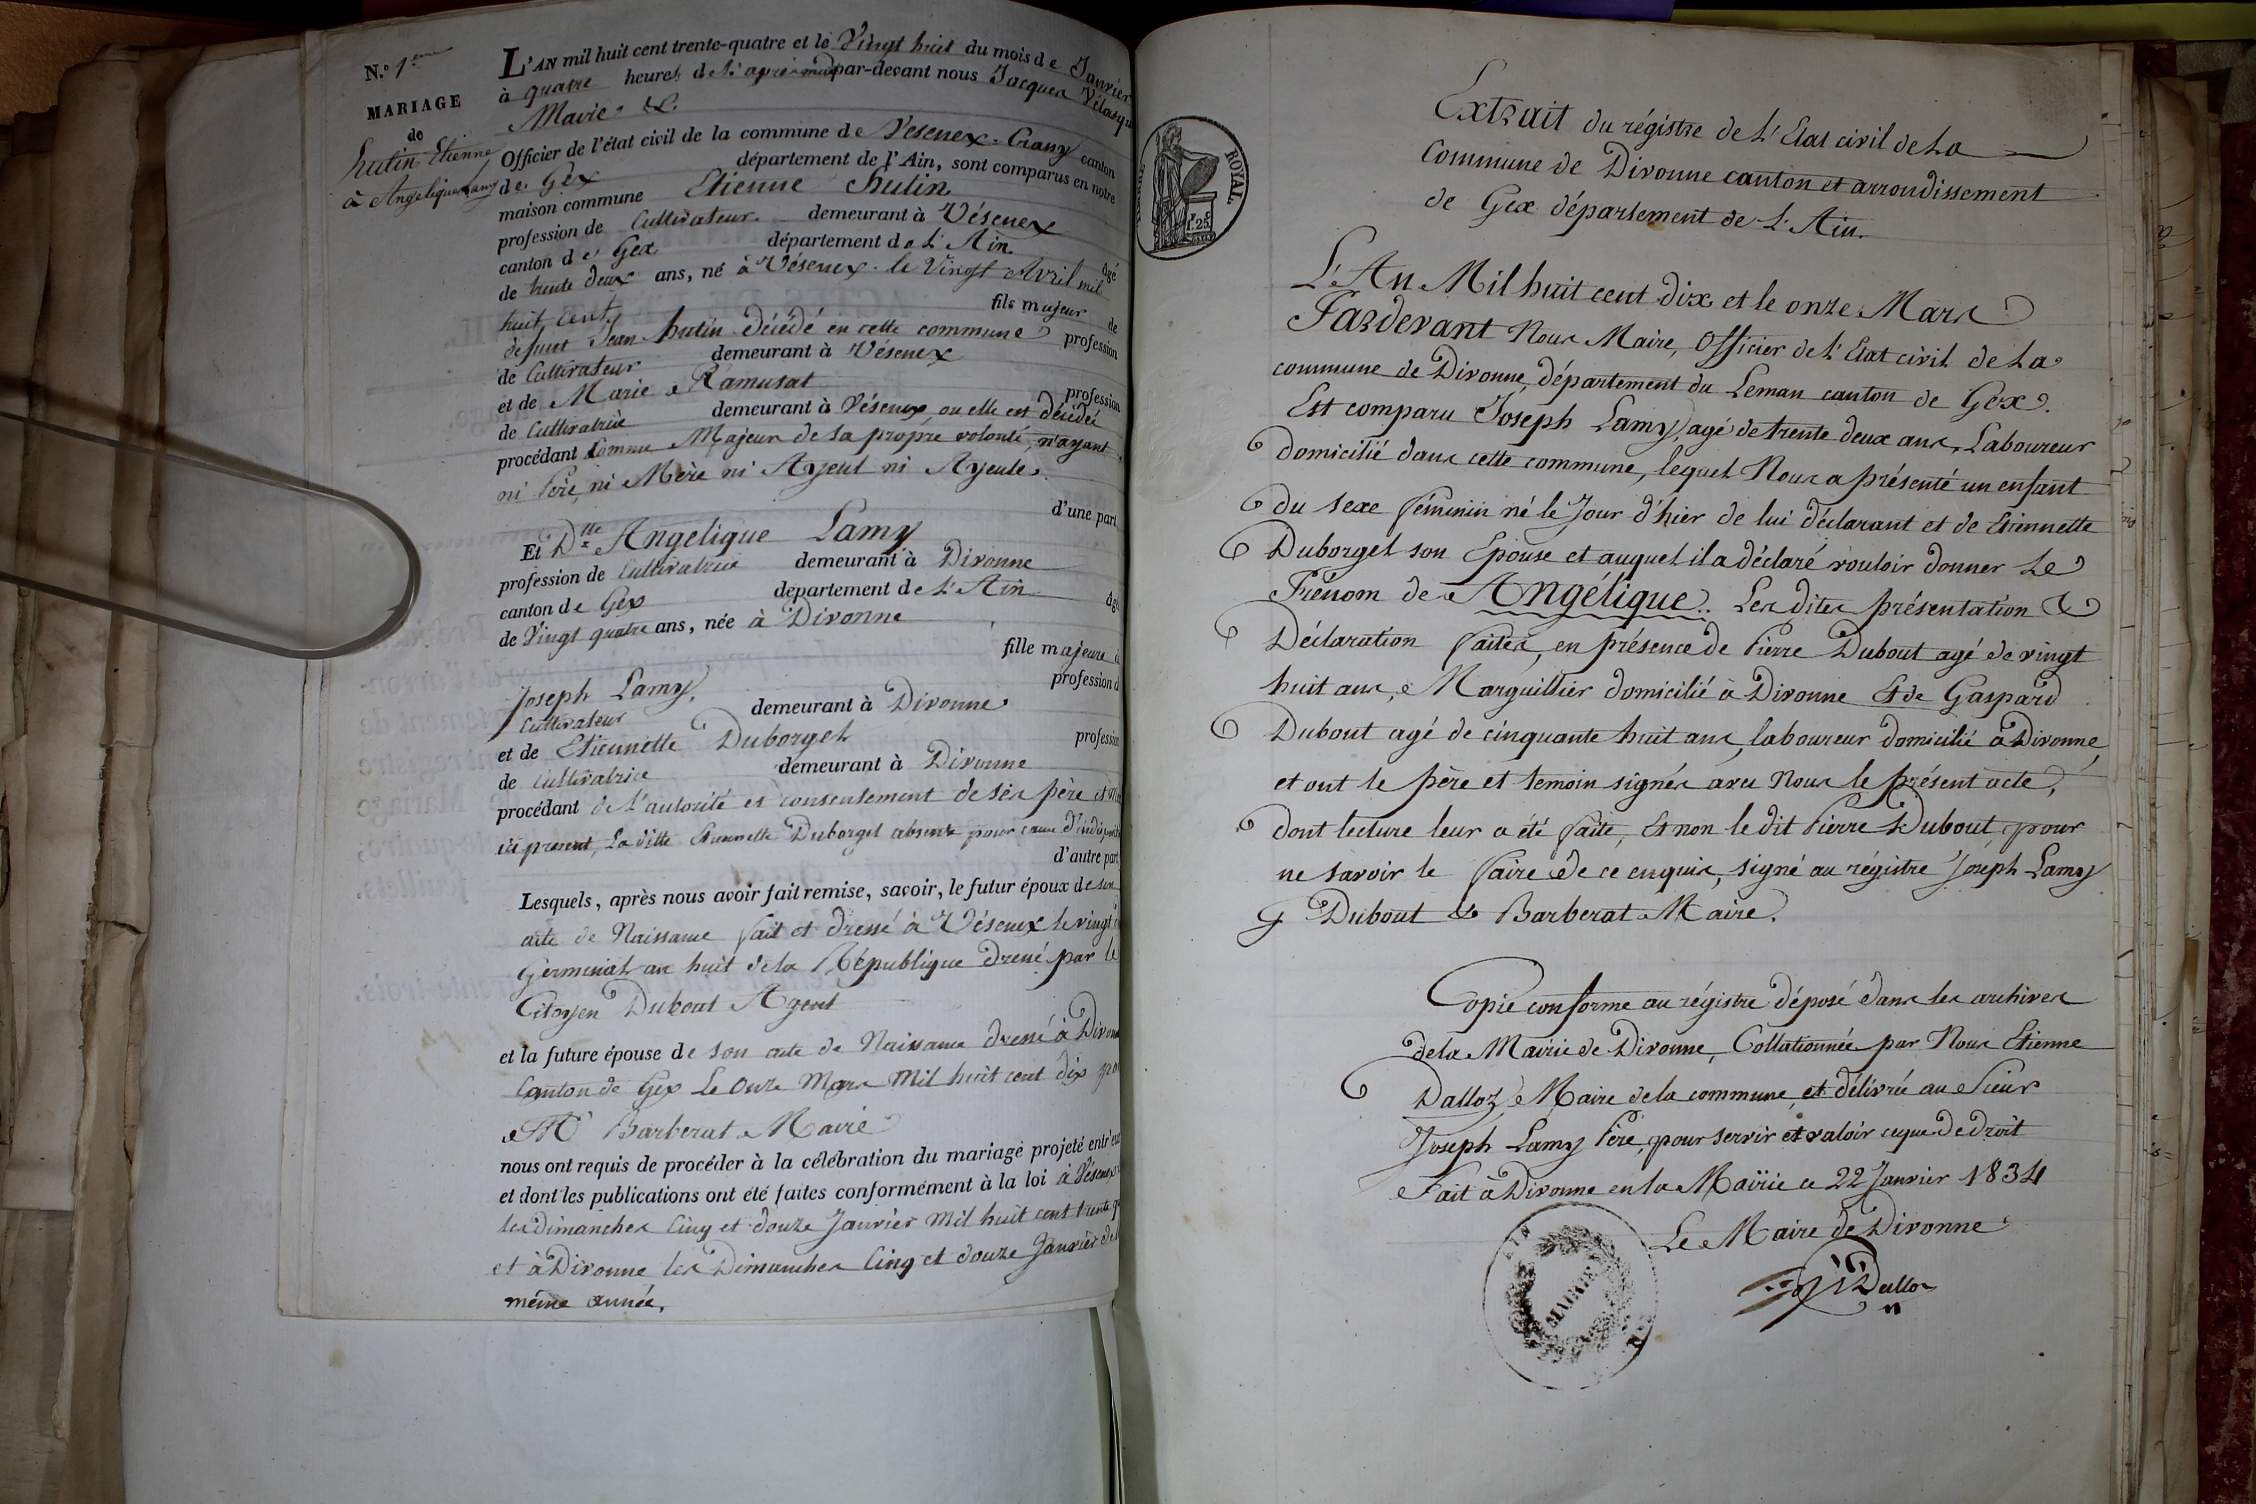 N.o 1.er
MARIAGE
de
hutin Etienne
à Angelique Lamy
L'AN mil huit cent trente-quatre et le Vingt huit du mois de Janvier
à quatre heures de l'après-midi par-devant nous Jacques
Maire &.
Officier de l'état civil de la commune de Vesenex-Crassy canton
de Gex département de l'Ain, sont comparus en notre
maison commune Etienne hutin
profession de Cultivateur demeurant à Vésenex
canton de Gex département de L'Ain âgé
de trente deux ans, né à Vésenex le Vingt Avril mil
huit cents fils majeur de
défunt Jean hutin décédé en cette commune profession
de Cultivateur demeurant à Vésenex
et de Marie Ramusat profession
de Cultivatrice demeurant à Vésenex, ou elle est décédée
procédant Comme Majeur de sa propre volonté, n'ayant
ni Père, ni Mère ni Ayeul ni Ayeule.
d'une part
Et D.lle Angelique Lamy
profession de Cultivatrice demeurant à Divonne
canton de Gex département de L'Ain âg
de Vingt quatre ans, née à Divonne
fille majeure
Joseph Lamy. profession d
Cultivateur demeurant à Divonne
et de Etiennette Duborgel profession
de Cultivatrice demeurant à Divonne
procédant de l'autorité et consentement de ses père et
ici present, La ditte Etiennette Duborgel absente pour cause d'
d'autre part
Lesquels, après nous avoir fait remise, savoir, le futur époux de son
acte de Naissance fait et dressé à Vésenex le vingt
Germinal an huit de la République dressé par le
Citoyen Dubout Agent
et la future épouse de son acte de Naissance dressé à Divonne
Canton de Gex Le Onze Mars Mil huit cent dix
Mr Barberat Maire
nous ont requis de procéder à la célébration du mariage projeté entr'eux
et dont les publications ont été faites conformément à la loi à Vésenex
les dimanches Cinq et douze Janvier Mil huit cent trente
et à Divonne les Dimanches Cinq et douze Janvier de
même année.
ROYAL
1f. 25c.
Extrait du régistre de L'Etat civil de La
Commune de Divonne canton et arrondissement
de Gex département de L'Ain.
L'An Mil huit cent dix et le onze Mars
Pardevant Nous Maire, Officier de L'Etat civil de La
commune de Divonne, département du Leman canton de Gex.
Est comparu Joseph Lamy, agé de trente deux ans, Laboureur
domicilié dans cette commune, lequel Nous a présenté un enfant
du sexe féminin né le Jour d'hier de lui déclarant et de Etiennette
Duborgel son Epouse et auquel il a déclaré vouloir donner Le
Prénom de Angélique. Les dites présentation &
Déclaration faites, en présence de Pierre Dubout agé de vingt
huit ans, Marguillier domicilié à Divonne Et de Gaspard
Dubout agé de cinquante huit ans, laboureur domicilié à Divonne,
et ont le père et temoin signés avec Nous le présent acte,
dont lecture leur a été faite, Et non le dit Pierre Dubout, pour
ne savoir le faire de ce enquis, signé au régistre Joseph Lamy
g Dubout & Barberat Maire.
Copie conforme au régistre déposé dans les archives
de la Mairie de Divonne, Collationnée par Nous Etienne
Dalloz Maire de la commune, et délivrée au Sieur
Joseph Lamy Père, pour servir et valoir ce que de droit
Fait à Divonne en la Mairie ce 22 Janvier 1834
Le Maire de Divonne
Dalloz